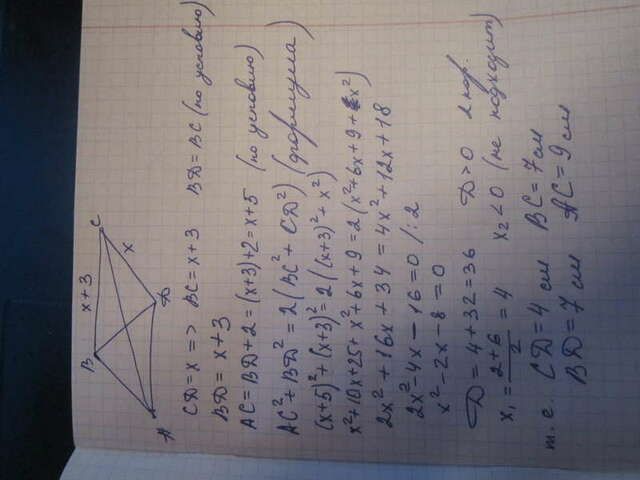 B x+3 C
x
A D
CD = x => BC = x+3 BD = BC (по условию)
BD = x+3
AC = BD+2 = (x+3)+2 = x+5 (по условию)
AC² + BD² = 2(BC² + CD²) (формула)
(x+5)² + (x+3)² = 2((x+3)² + x²)
x²+10x+25+x²+6x+9 = 2(x²+6x+9+x²)
2x² + 16x + 34 = 4x² + 12x + 18
2x² - 4x - 16 = 0 /:2
x² - 2x - 8 = 0
D = 4 + 32 = 36 D > 0 2 кор.
x₁ = 2+6/2 = 4 x₂ < 0 (не подходит)
т.е. CD = 4 см BC = 7 см
BD = 7 см AC = 9 см